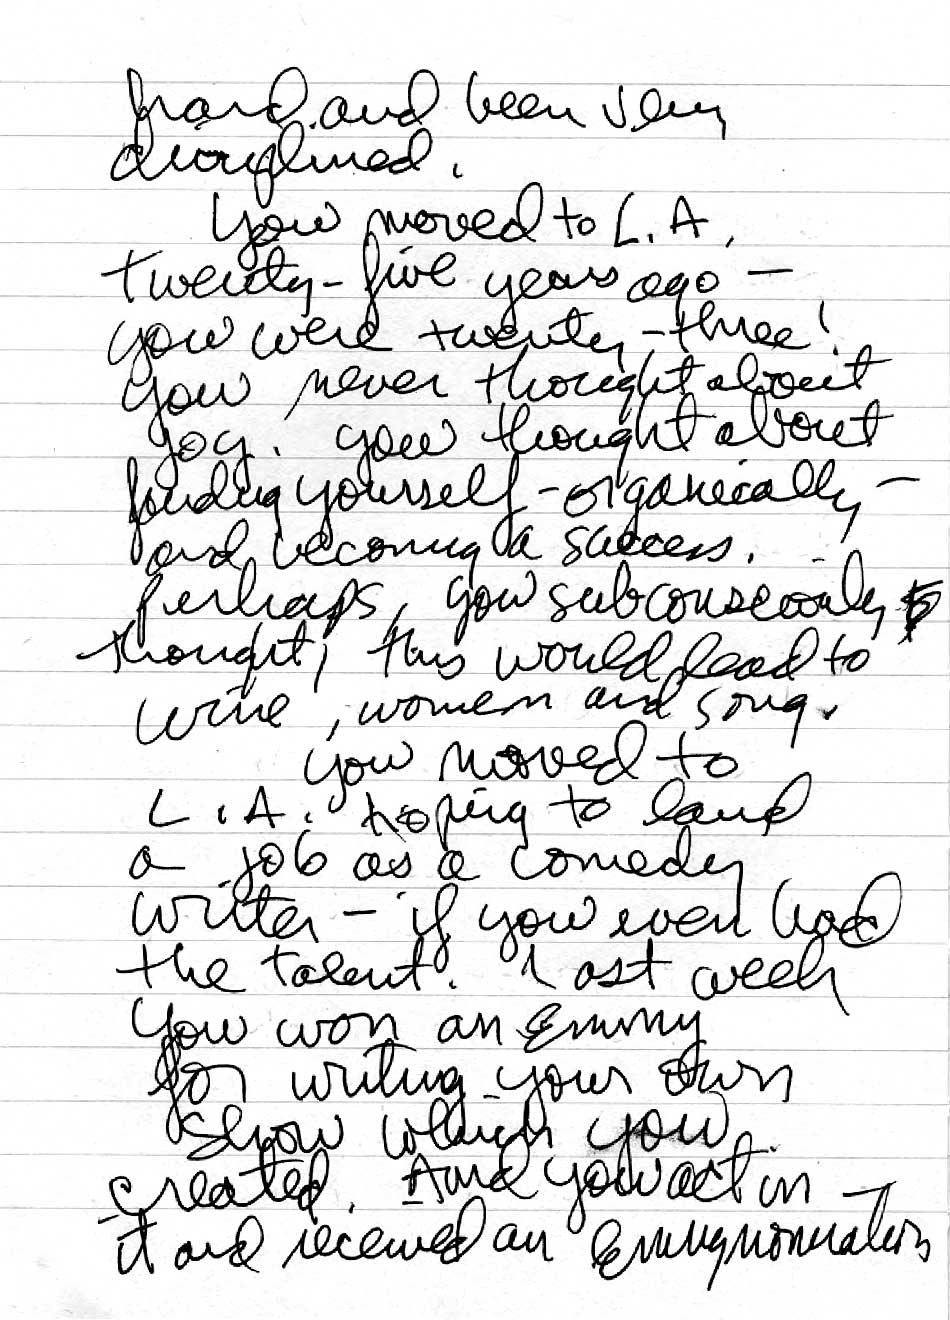 hard and been very
disciplined.
You moved to L.A.
twenty-five years ago —
you were twenty-three!
You never thought about
joy. You thought about
finding yourself - organically -
and becoming a success.
Perhaps, you subconsciously
thought, this would lead to
wine, women and song.
You moved to
L.A. hoping to land
a job as a comedy
writer - if you even had
the talent. Last week
you won an Emmy
for writing your own
show which you
created. And you act in
it and received an Emmy nomination